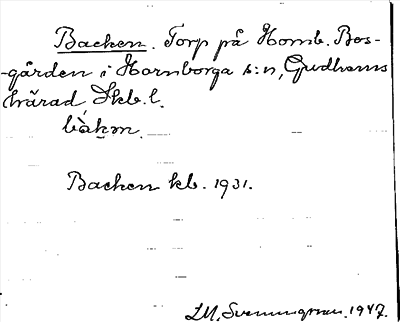 Backen. Torp på Homb. Bos-
-gården i Hornborga s:n, Gudhems
härad, Skb. l.
bàkm.
Backen kb. 1931.
1947.